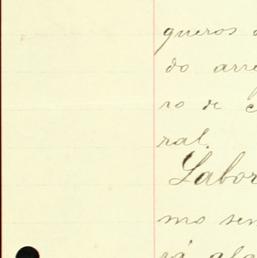 gueros
do arre
ro de
ral.
Labor
mo sen
rá alg